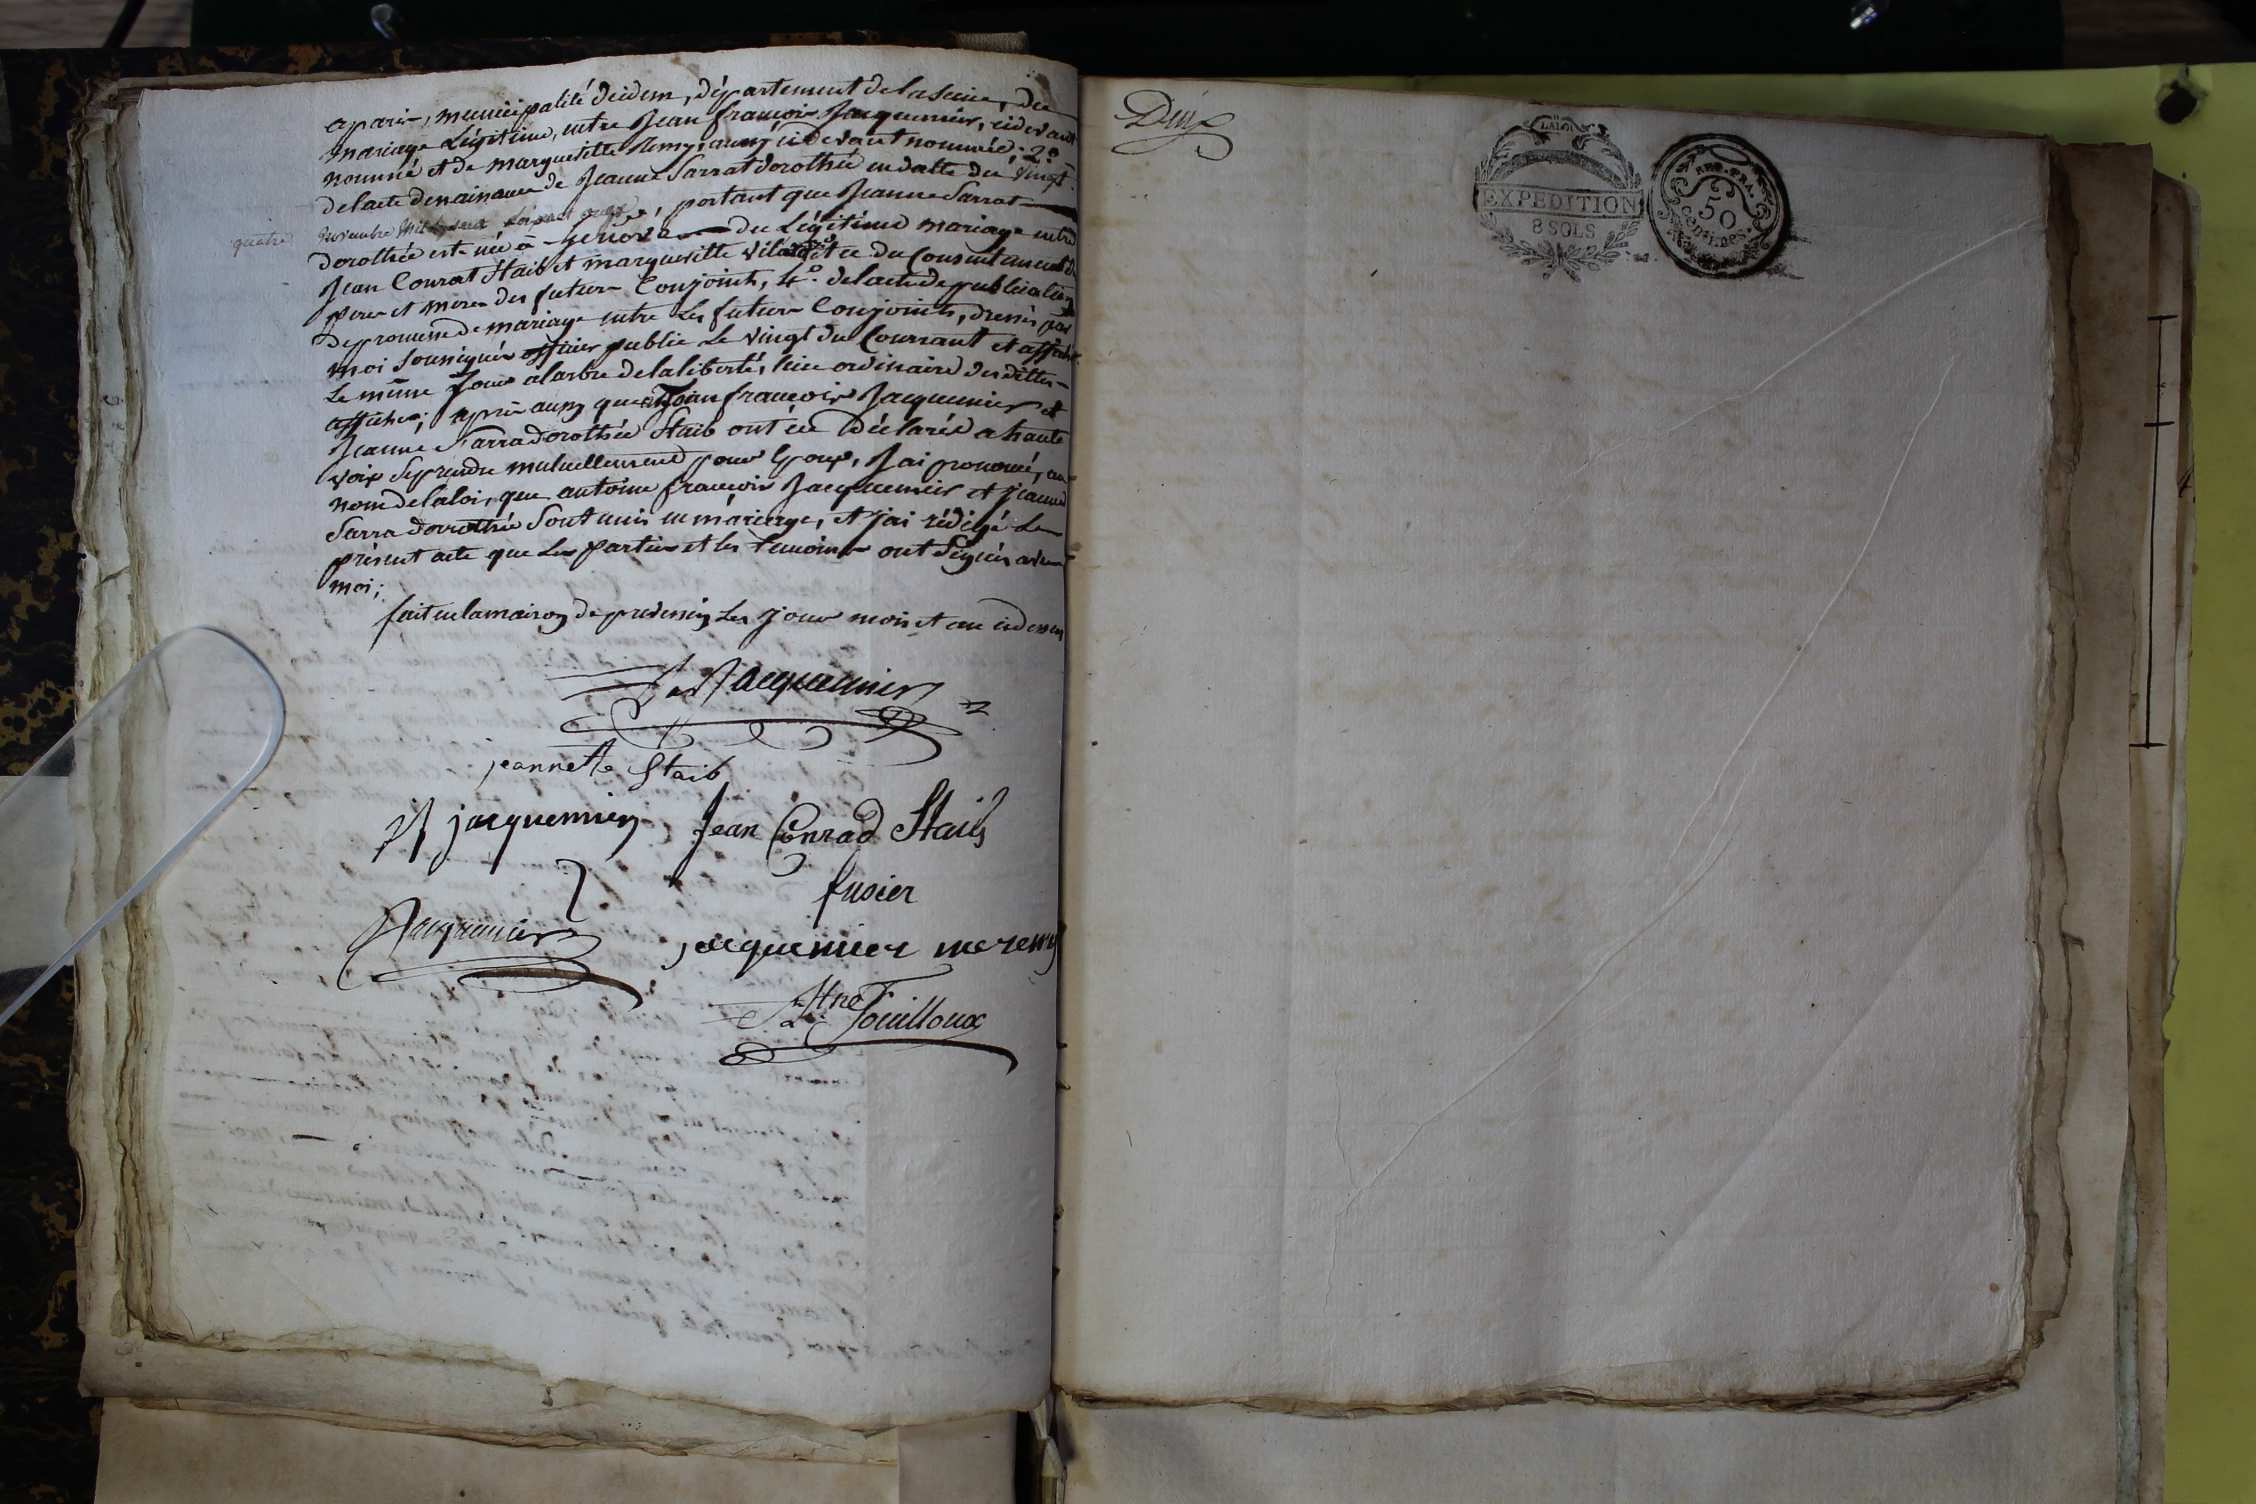 a paris, municipalité d'idem, département de la Seine, du
mariage Légitime, entre Jean françois Jacquemier, cidevant
nommé et de margueritte Remy, aussy cidevant nommée; 2.º
de lacte de naissance de Jeanne Sarrat dorothée en datte du vingt
quatre novembre mil sept cent, portant que Jeanne Sarrat
dorothée est née à Genève du Légitime mariage entre
Jean Conrat Staib et margueritte du Consentement de
peres et meres des futurs Conjoints, 4.º de lacte de publication
de promesse de mariage entre Les futurs Conjoints, dressés par
moi soussigné officier public Le vingt du Courrant et affiché
Le même Jour a larbre de la liberté, lieu ordinaire des dittes
affiches; après aussy que françois Jacquemier et
Jeanne Sarra dorothée Staib ont été Déclaré a haute
voix se prendre mutuellement pour Epoux, J'ai prononcé, au
nom de la loi, que antoine françois Jacquemier et jeanne
Sarra dorothée Sont unis en mariage, et j'ai rédigé Le
présent acte que Les parties et les temoins ont Signés avec
moi;
fait en la maison de prevessin Les jour mois et an cidessus
Jacquemier
jeannette Staib
jf jacquemier Jean Conrad Staib
fusier
Jacquemier jacquemier ne remy
Fouilloux
Dix
LA LOI
EXPEDITION
8 SOLS
REP. FRA.
50
centimes